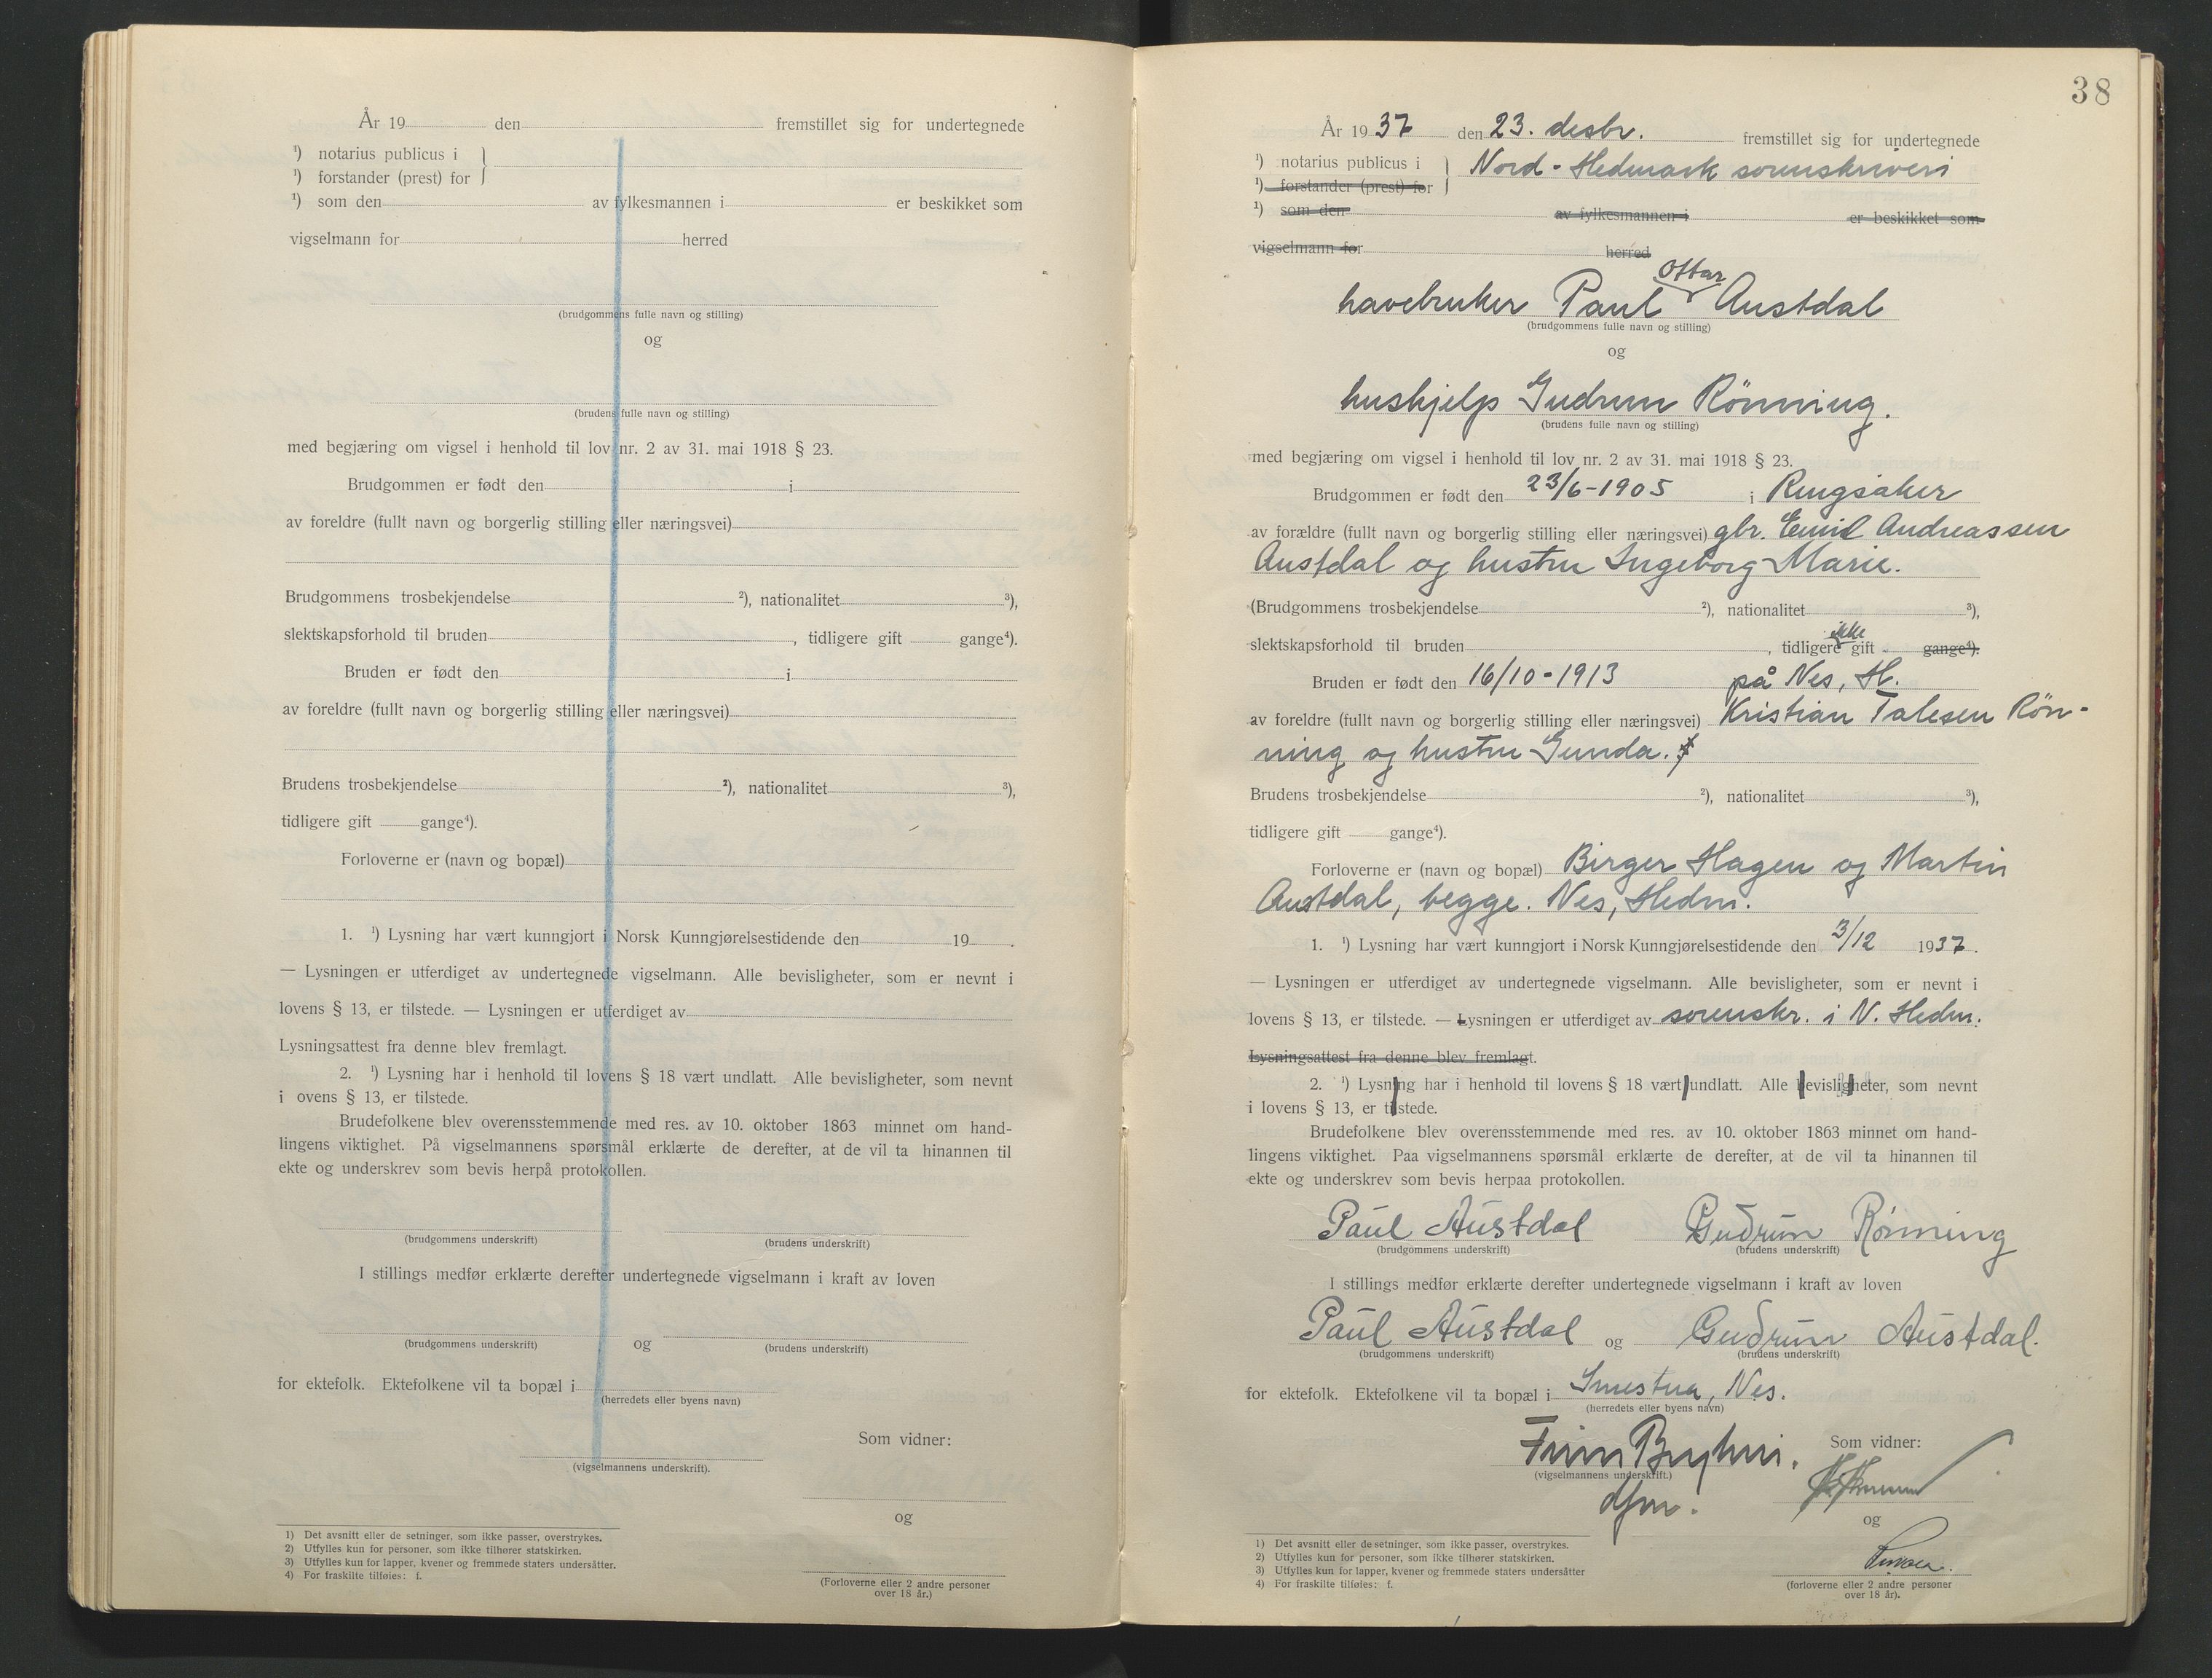 År 19 den fremstillet sig for undertegnede
¹) notarius publicus i
¹) forstander (prest) for
¹) som den av fylkesmannen i er beskikket som
vigselmann for herred
(brudgommens fulle navn og stilling)
og
(brudens fulle navn og stilling)
med begjæring om vigsel i henhold til lov nr. 2 av 31. mai 1918 § 23.
Brudgommen er født den i
av foreldre (fullt navn og borgerlig stilling eller næringsvei)
Brudgommens trosbekjendelse ²), nationalitet ³),
slektskapsforhold til bruden , tidligere gift gange⁴).
Bruden er født den i
av foreldre (fullt navn og borgerlig stilling eller næringsvei)
Brudens trosbekjendelse ²), nationalitet ³),
tidligere gift gange⁴).
Forloverne er (navn og bopæl)
1. ¹) Lysning har vært kunngjort i Norsk Kunngjørelsestidende den 19 .
— Lysningen er utferdiget av undertegnede vigselmann. Alle bevisligheter, som er nevnt i
lovens § 13, er tilstede. — Lysningen er utferdiget av
Lysningsattest fra denne blev fremlagt.
2. ¹) Lysning har i henhold til lovens § 18 vært undlatt. Alle bevisligheter, som nevnt
i ovens § 13, er tilstede.
Brudefolkene blev overensstemmende med res. av 10. oktober 1863 minnet om hand-
lingens viktighet. På vigselmannens spørsmål erklærte de derefter, at de vil ta hinannen til
ekte og underskrev som bevis herpå protokollen.
(brudgommens underskrift) (brudens underskrift)
I stillings medfør erklærte derefter undertegnede vigselmann i kraft av loven
og
(brudgommens underskrift) (brudens underskrift)
for ektefolk. Ektefolkene vil ta bopæl i
(herredets eller byens navn)
Som vidner:
(vigselmannens underskrift).
og
1) Det avsnitt eller de setninger, som ikke passer, overstrykes.
2) Utfylles kun for personer, som ikke tilhører statskirken.
3) Utfylles kun for lapper, kvener og fremmede staters undersåtter.
4) For fraskilte tilføies: f.
(Forloverne eller 2 andre personer
over 18 år.)
38
År 1937 den 23. desbr. fremstillet sig for undertegnede
¹) notarius publicus i Nord-Hedmark sorenskriveri
¹) forstander (prest) for
¹) som den av fylkesmannen i er beskikket som
vigselmann for herred
Ottar
havebruker Paul Austdal
(brudgommens fulle navn og stilling)
og
hushjelp Gudrun Rönning.
(brudens fulle navn og stilling)
med begjæring om vigsel i henhold til lov nr. 2 av 31. mai 1918 § 23.
Brudgommen er født den 23/6-1905 i Ringsaker
av forældre (fullt navn og borgerlig stilling eller næringsvei) gbr. Emil Andreassen
Austdal og hustru Ingeborg Marie.
(Brudgommens trosbekjendelse ²), nationalitet ³),
slektskapsforhold til bruden , tidligere ikke gift gange⁴).
Bruden er født den 16/10-1913 på Nes, H.
av foreldre (fullt navn og borgerlig stilling eller næringsvei) Kristian Talesen Rön-
ning og hustru Gunda.
Brudens trosbekjendelse ²), nationalitet ³),
tidligere gift gange⁴).
Forloverne er (navn og bopæl) Birger Hagen og Martin
Austdal, begge. Nes, Hedm.
1. ¹) Lysning har vært kunngjort i Norsk Kunngjørelsestidende den 3/12 1937.
— Lysningen er utferdiget av undertegnede vigselmann. Alle bevisligheter, som er nevnt i
lovens § 13, er tilstede. — Lysningen er utferdiget av sorenskr. i N. Hedm.
Lysningsattest fra denne blev fremlagt.
2. ¹) Lysning har i henhold til lovens § 18 vært undlatt. Alle bevisligheter, som nevnt
i lovens § 13, er tilstede.
Brudefolkene blev overensstemmende med res. av 10. oktober 1863 minnet om hand-
lingens viktighet. Paa vigselmannens spørsmål erklærte de derefter, at de vil ta hinannen til
ekte og underskrev som bevis herpaa protokollen.
Paul Austdal Gudrun Rönning
(brudgommens underskrift) (brudens underskrift)
I stillings medfør erklærte derefter undertegnede vigselmann i kraft av loven
Paul Austdal og Gudrun Austdal.
(brudgommens underskrift) (brudens underskrift)
for ektefolk. Ektefolkene vil ta bopæl i Smestua, Nes.
(herredets eller byens navn)
Finn Bryhni. Som vidner:
(vigselmannens underskrift.)
og
1) Det avsnitt eller de setninger, som ikke passer, overstrykes.
2) Utfylles kun for personer, som ikke tilhører statskirken.
3) Utfylles kun for lapper, kvener og fremmede staters undersåtter
4) For fraskilte tilføies: f.
(forloverne eller 2 andre personer
over 18 år).